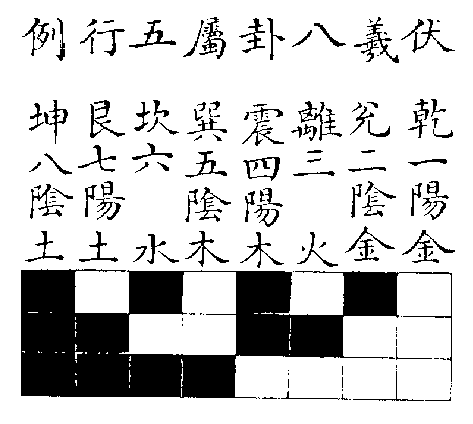 伏羲八卦屬五行例
乾一陽金
兌二陰金
離三火
震四陽木
巽五陰木
坎六水
艮七陽土
坤八陰土